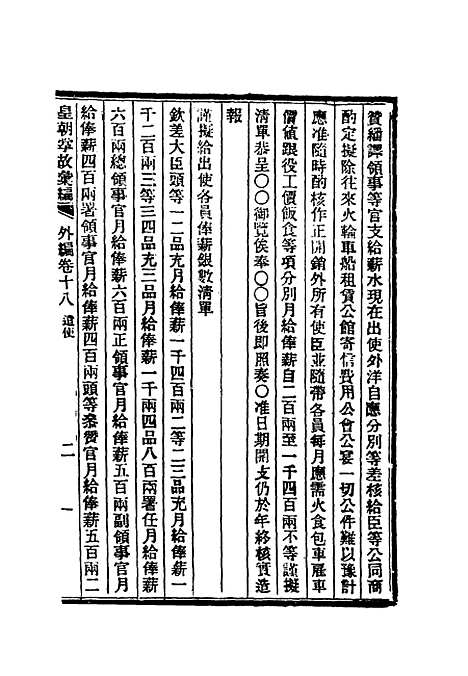 贊繙譯領事等官支給薪水現在出使外洋自應分別等差核給臣等公同商
酌定擬除往來火輪車船租賃公館寄信費用公會公宴一切公件難以豫計
應准隨時酌核作正開銷外所有使臣並隨帶各員每月應需火食包車雇車
價値跟役工價飯食等項分別月給俸薪自二百兩至一千四百兩不等謹擬
清單恭呈〇〇御覽俟奉〇〇旨後卽照奏〇准日期開支仍於年終核實造
報
謹擬給出使各員俸薪銀數清單
欽差大臣頭等一二品充月給俸薪一千四百兩二等二三品充月給俸薪一
千二百兩三等三四品充三品月給俸薪一千兩四品八百兩署任月給俸薪
六百兩總領事官月給俸薪六百兩正領事官月給俸薪五百兩副領事官月
給俸薪四百兩署領事官月給俸薪四百兩頭等叅贊官月給俸薪五百兩二
皇朝掌故彙編 外編卷十八 遣使 二